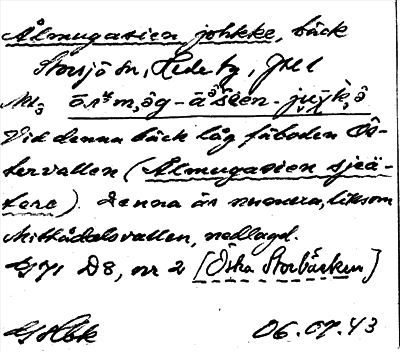 Ålmugasien johkke, bäck
Storsjö sn, Hede tg, Jtl
Vid denna bäck låg fäboden Ös-
tervallen (Ålmugasien sjeä-
tere). Denna är numera, liksom
Mittådalsvallen, nedlagd.
D8, nr 2 [Östra Storbäcken]
06.07.43